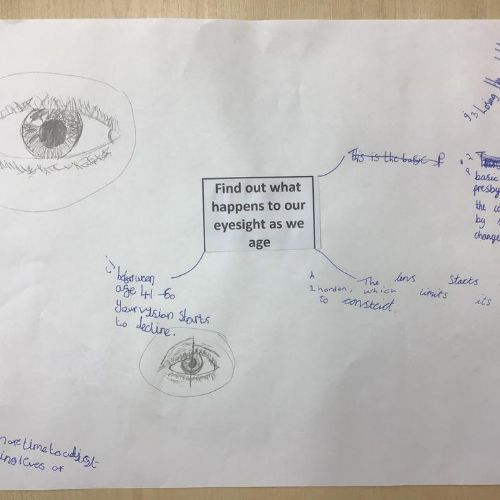 Losing
This is the basic
Find out what
happens to our
eyesight as we
age
basic
presby
the
by
change
between
age 41-60
your vision starts
to decline.
The lens starts
harden, which limits its
to constract.
more time to adjust